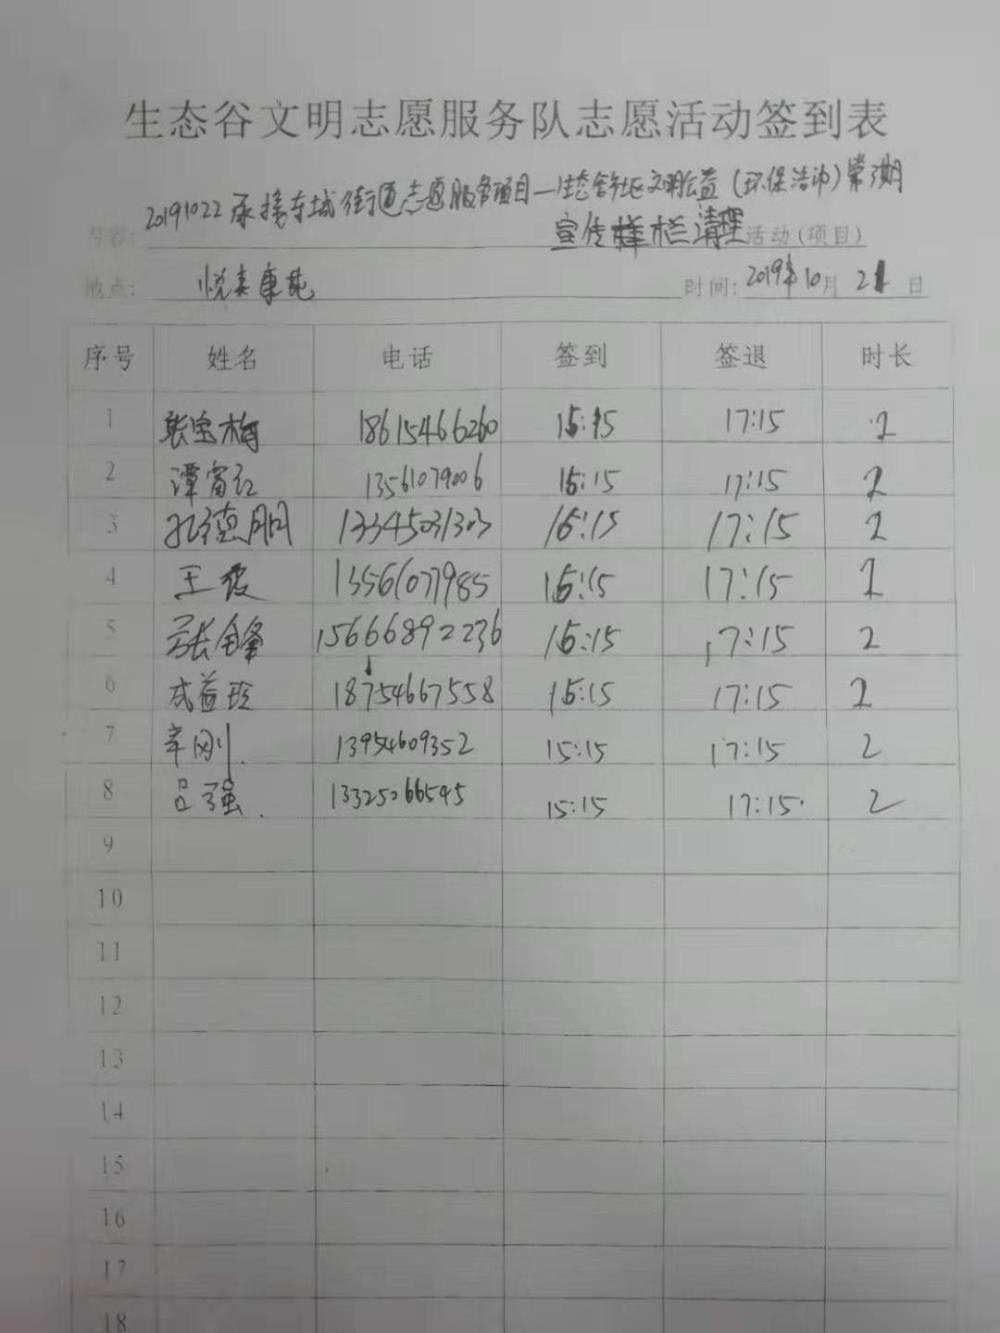 生态谷文明志愿服务队志愿活动签到表
20191022承接东城街道志愿服务项目—生态谷社区文明公益(环保活动)常规期
内容: 宣传栏清理 活动(项目)
地点: 悦来康苑 时间: 2019年10月21日
序号 姓名 电话 签到 签退 时长
1 张宝梅 18615466260 15:15 17:15 2
2 谭富红 13561079006 15:15 17:15 2
3 孔德朋 13345031303 15:15 17:15 2
4 王俊 13561077985 15:15 17:15 2
5 张金锋 15666892236 15:15 17:15 2
6 成益珍 18754667558 15:15 17:15 2
7 辛刚 13954609352 15:15 17:15 2
8 吕强 13325066545 15:15 17:15 2
9
10
11
12
13
14
15
16
17
18